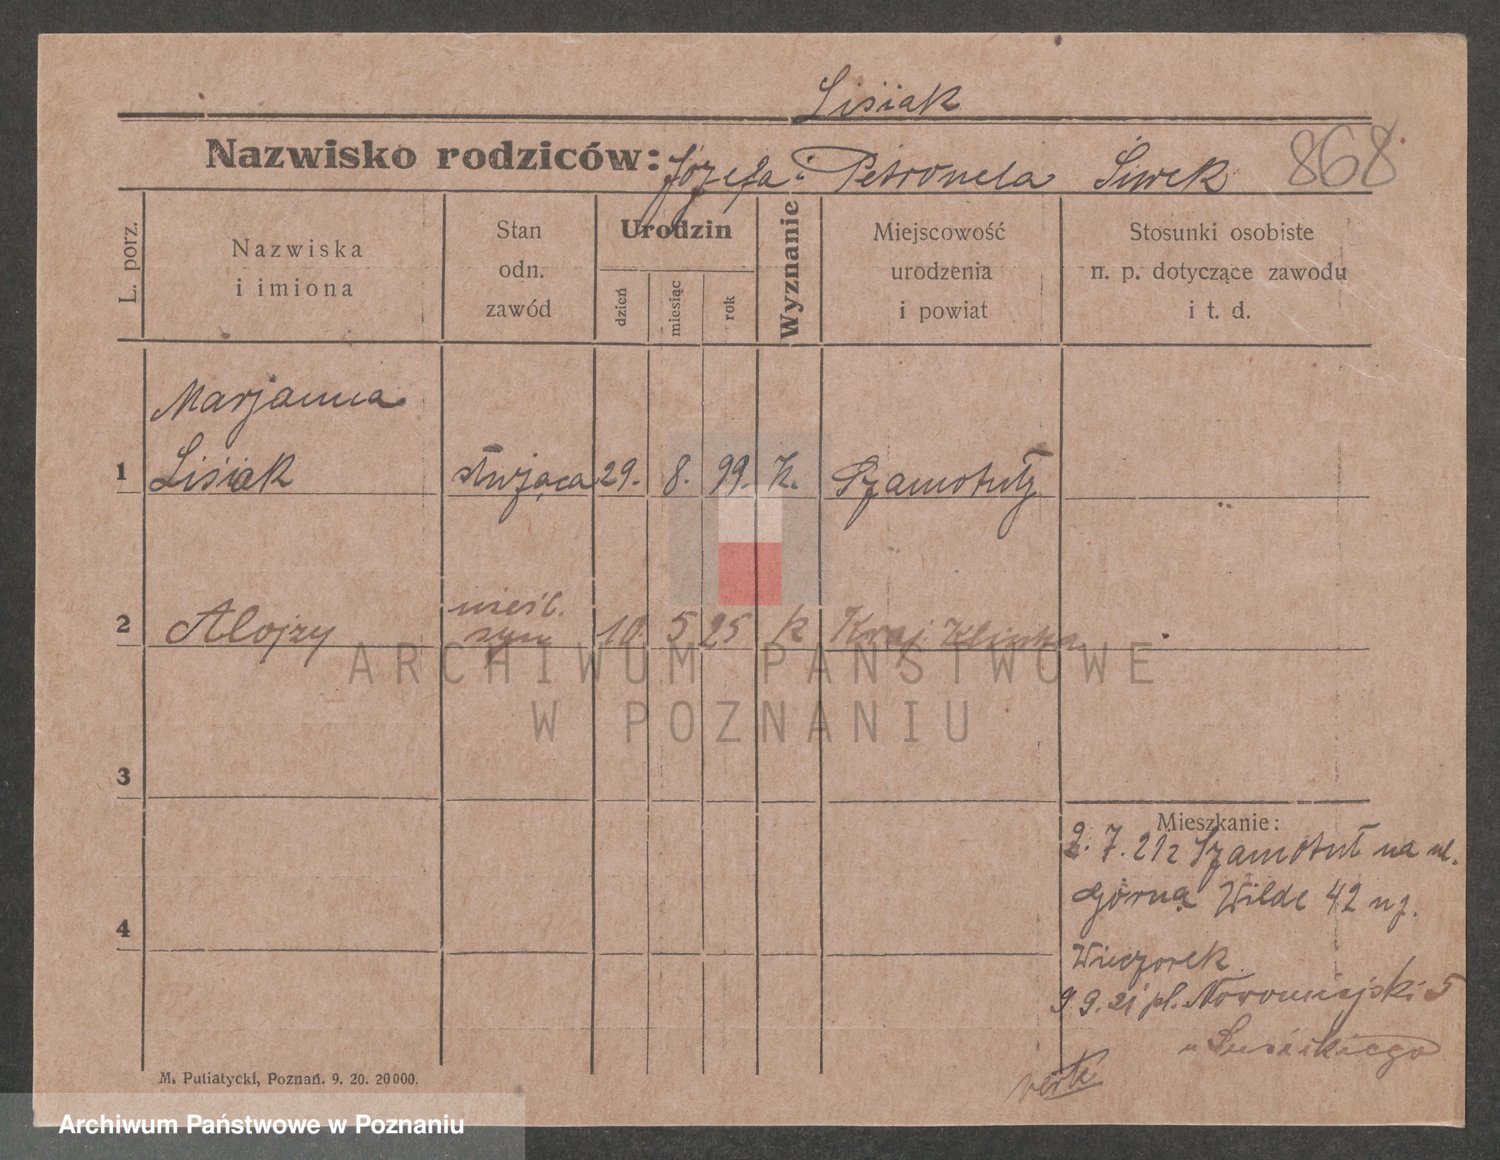 Lisiak
Nazwisko rodziców: Józefa i Petronela Siwek 868
L. porz.
Nazwiska
i imiona
Stan
odn.
zawód
Urodzin
dzień
miesiąc
rok
Wyznanie
Miejscowość
urodzenia
i powiat
Stosunki osobiste
n. p. dotyczące zawodu
i t. d.
Marjanna
1 Lisiak służąca 29. 8. 99. k. Szamotuły
nieśl.
2 Alojzy syn 10 5 25 k Kraj. Klinka
3
Mieszkanie:
2. 7. 21 z Szamotuł na ul.
Górną Wilde 42 u j.
4
Wieczorek
9 9. 21 pl. Nowomiejski 5
u
M. Putiatycki, Poznań. 9. 20. 20000.
ARCHIWUM PAŃSTWOWE
W POZNANIU
Archiwum Państwowe w Poznaniu